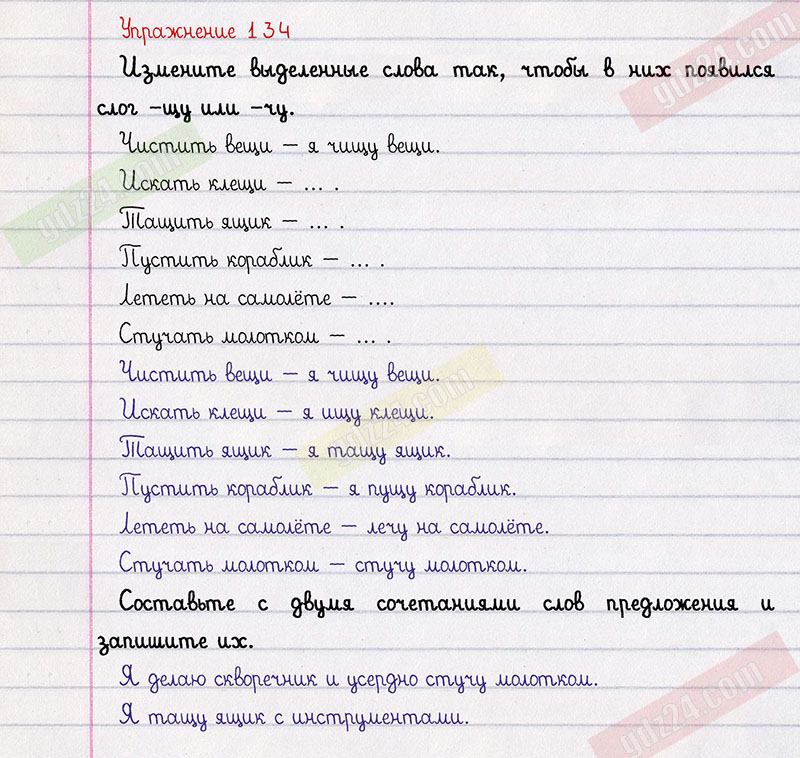 Упражнение 134
Измените выделенные слова так, чтобы в них появился
слог –щу или –чу.
Чистить вещи – я чищу вещи.
Искать клещи – ... .
Тащить ящик – ... .
Пустить кораблик – ... .
Лететь на самолёте – ....
Стучать молотком – ... .
Чистить вещи – я чищу вещи.
Искать клещи – я ищу клещи.
Тащить ящик – я тащу ящик.
Пустить кораблик – я пущу кораблик.
Лететь на самолёте – лечу на самолёте.
Стучать молотком – стучу молотком.
Составьте с двумя сочетаниями слов предложения и
запишите их.
Я делаю скворечник и усердно стучу молотком.
Я тащу ящик с инструментами.
gdz24.com
gdz24.com
gdz24.com
gdz24.com